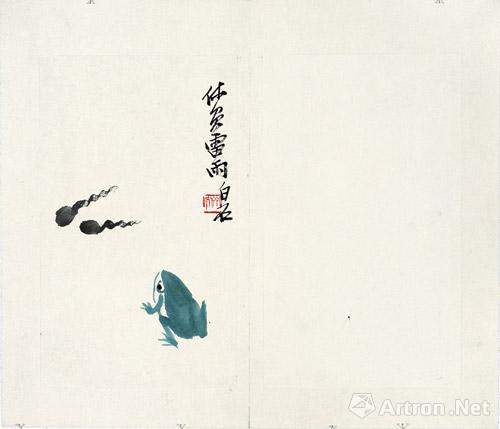 休负雷雨
白石
Artron.Net